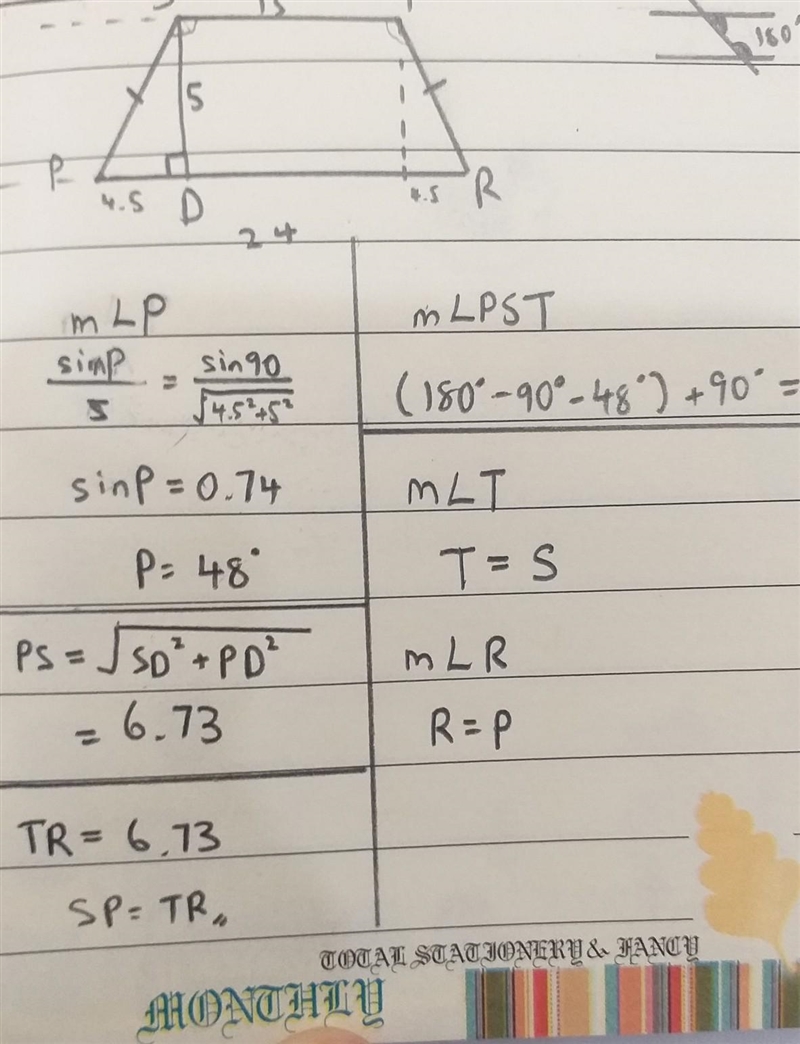 15
180°
5
P
R
4.5
D
4.5
24
m∠P
sinP/5 = sin90/√4.5²+5²
sinP = 0.74
P = 48°
PS = √SD² + PD²
= 6.73
TR = 6.73
SP = TR
m∠PST
(180° - 90° - 48°) + 90° =
m∠T
T = S
m∠R
R = P
TOTAL STATIONERY & FANCY
MONTHLY